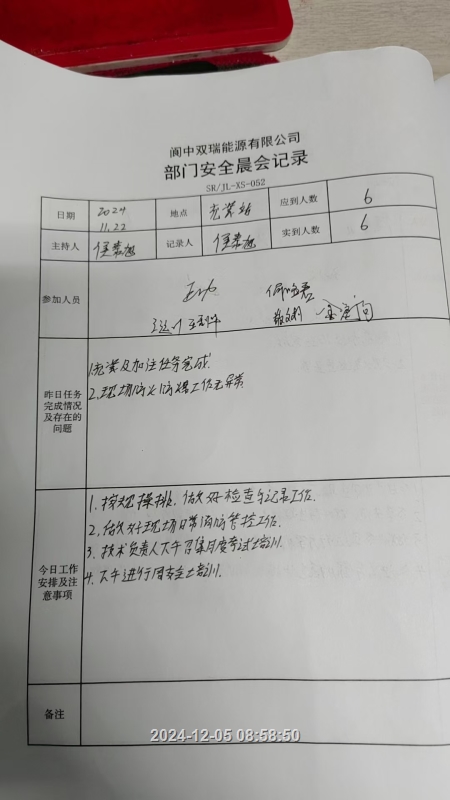 阆中双瑞能源有限公司
部门安全晨会记录
SR/JL-XS-052
日期 2024 11.22 地点 充装站 应到人数 6
主持人 记录人 实到人数 6
参加人员
昨日任务完成情况及存在的问题
1.充装及加注任务完成.
2.现场防火防爆工作无异常
今日工作安排及注意事项
1.按规操排, 做好检查与记录工作.
2.做好现场日常消防管控工作.
3.技术负责人下午召集月度考试培训.
4.下午进行周安全培训.
备注
2024-12-05 08:58:50